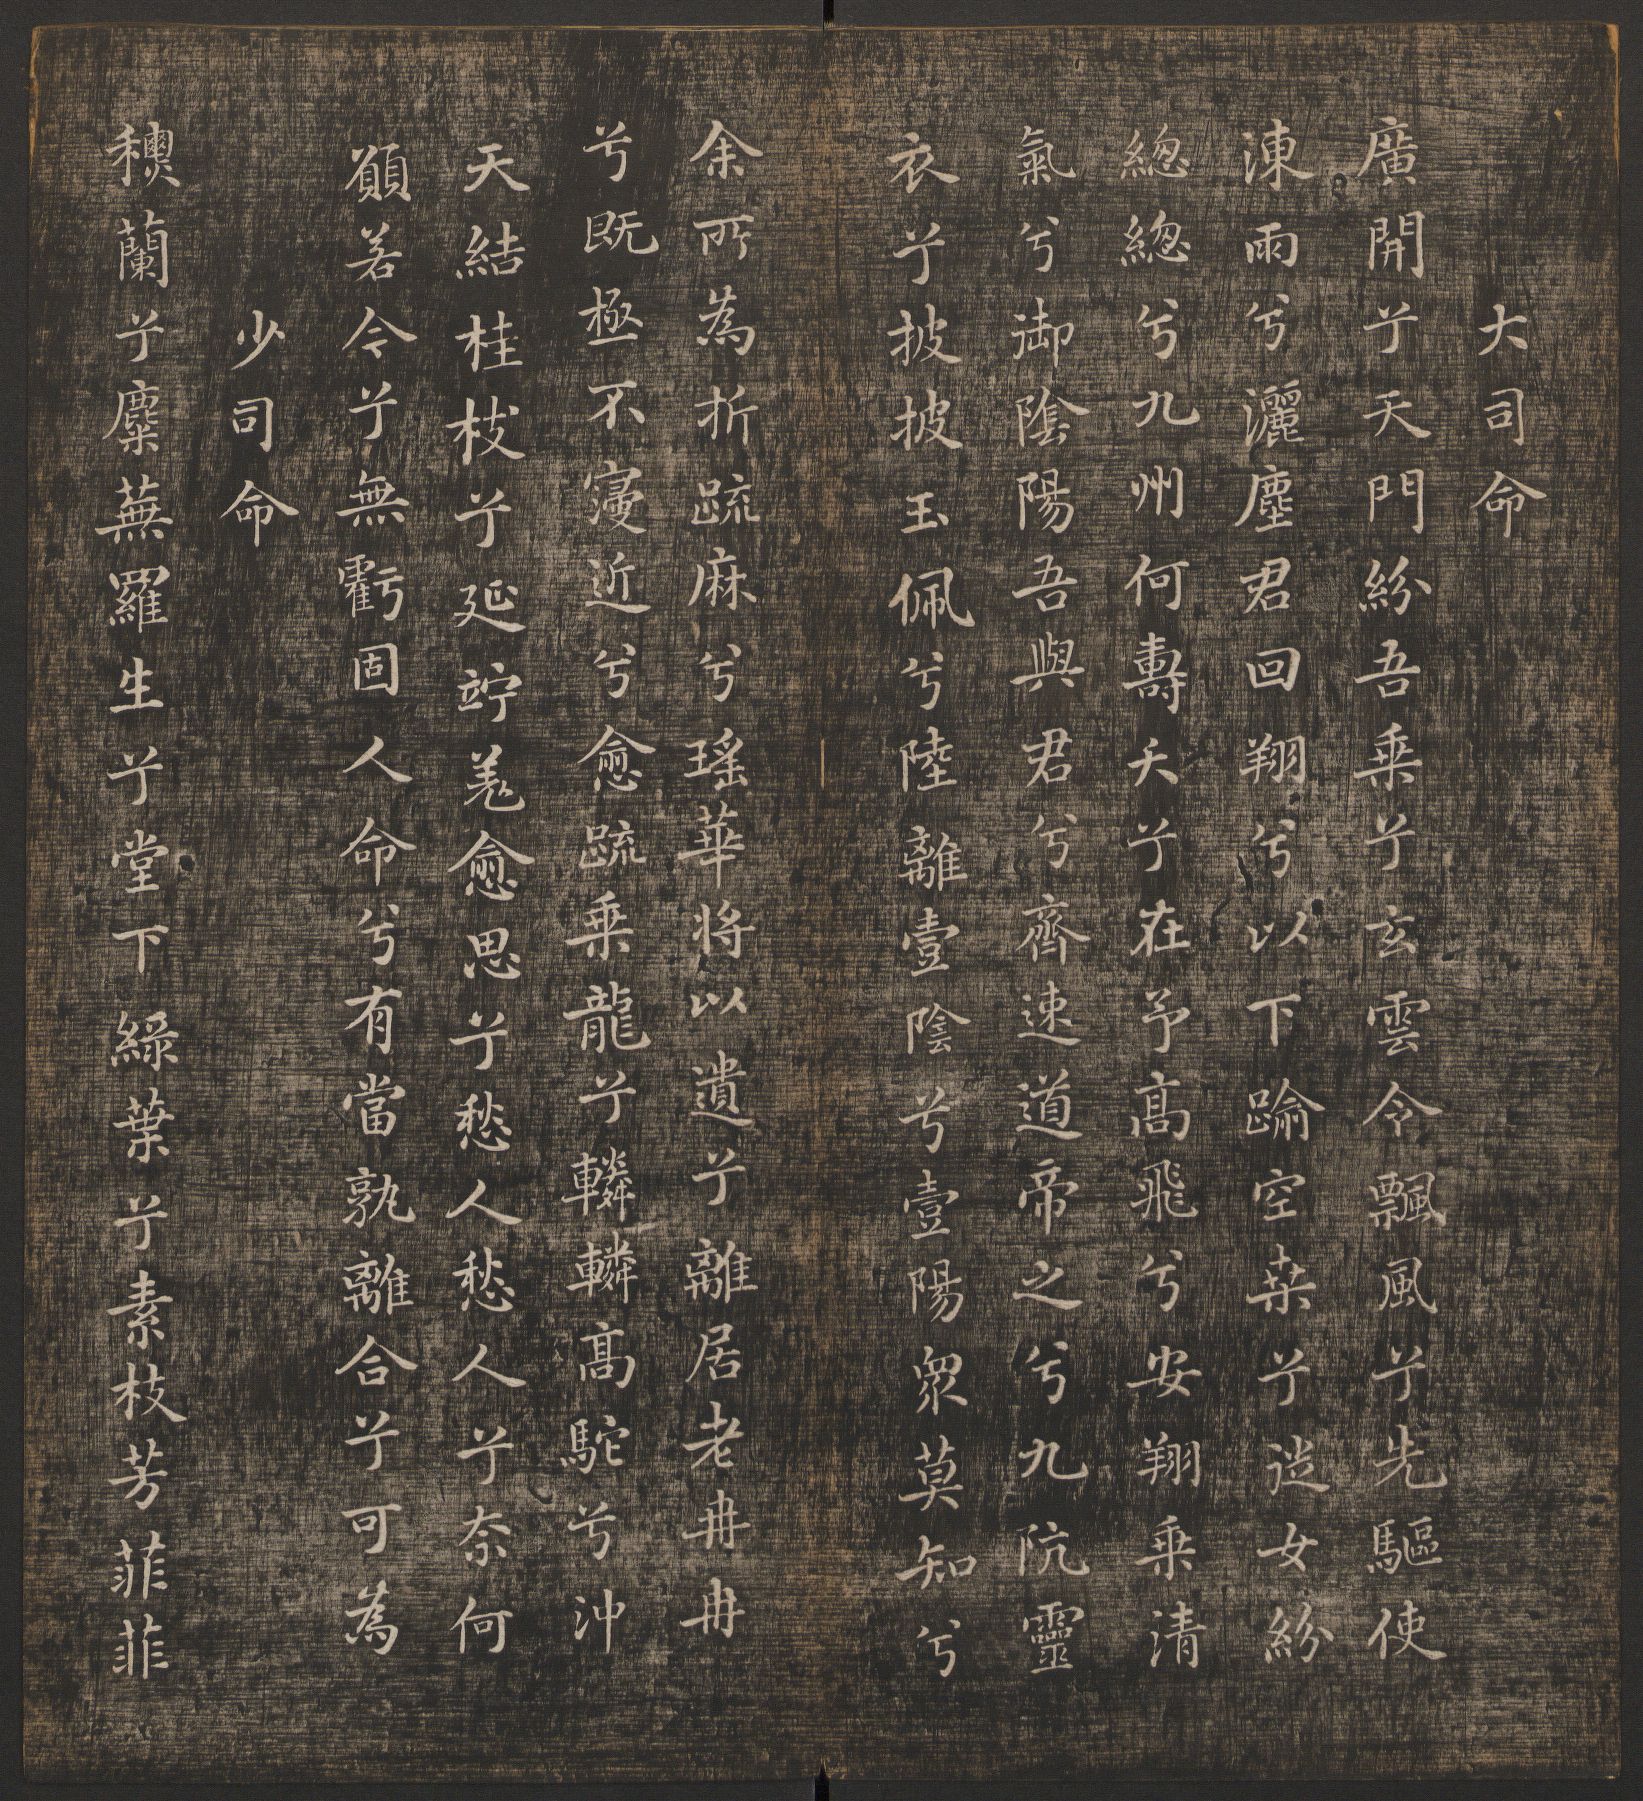 大司命
廣開兮天門紛吾乗兮玄雲令飄風兮先驅使
涷雨兮灑塵君回翔兮以下踰空桒兮從女紛
總總兮九州何壽夭兮在予髙飛兮安翔乗清
氣兮御陰陽吾與君兮齊速道帝之兮九阬靈
衣兮披披玉佩兮陸離壹陰兮壹陽衆莫知兮
余所為折疏麻兮瑤華將以遺兮離居老冉冉
兮既極不寖近兮愈疏乗龍兮轔轔髙駝兮沖
天結桂枝兮延竚羌愈思兮愁人愁人兮奈何
願若今兮無虧固人命兮有當孰離合兮可為
少司命
穗蘭兮麋蕪羅生兮堂下綠葉兮素枝芳菲菲